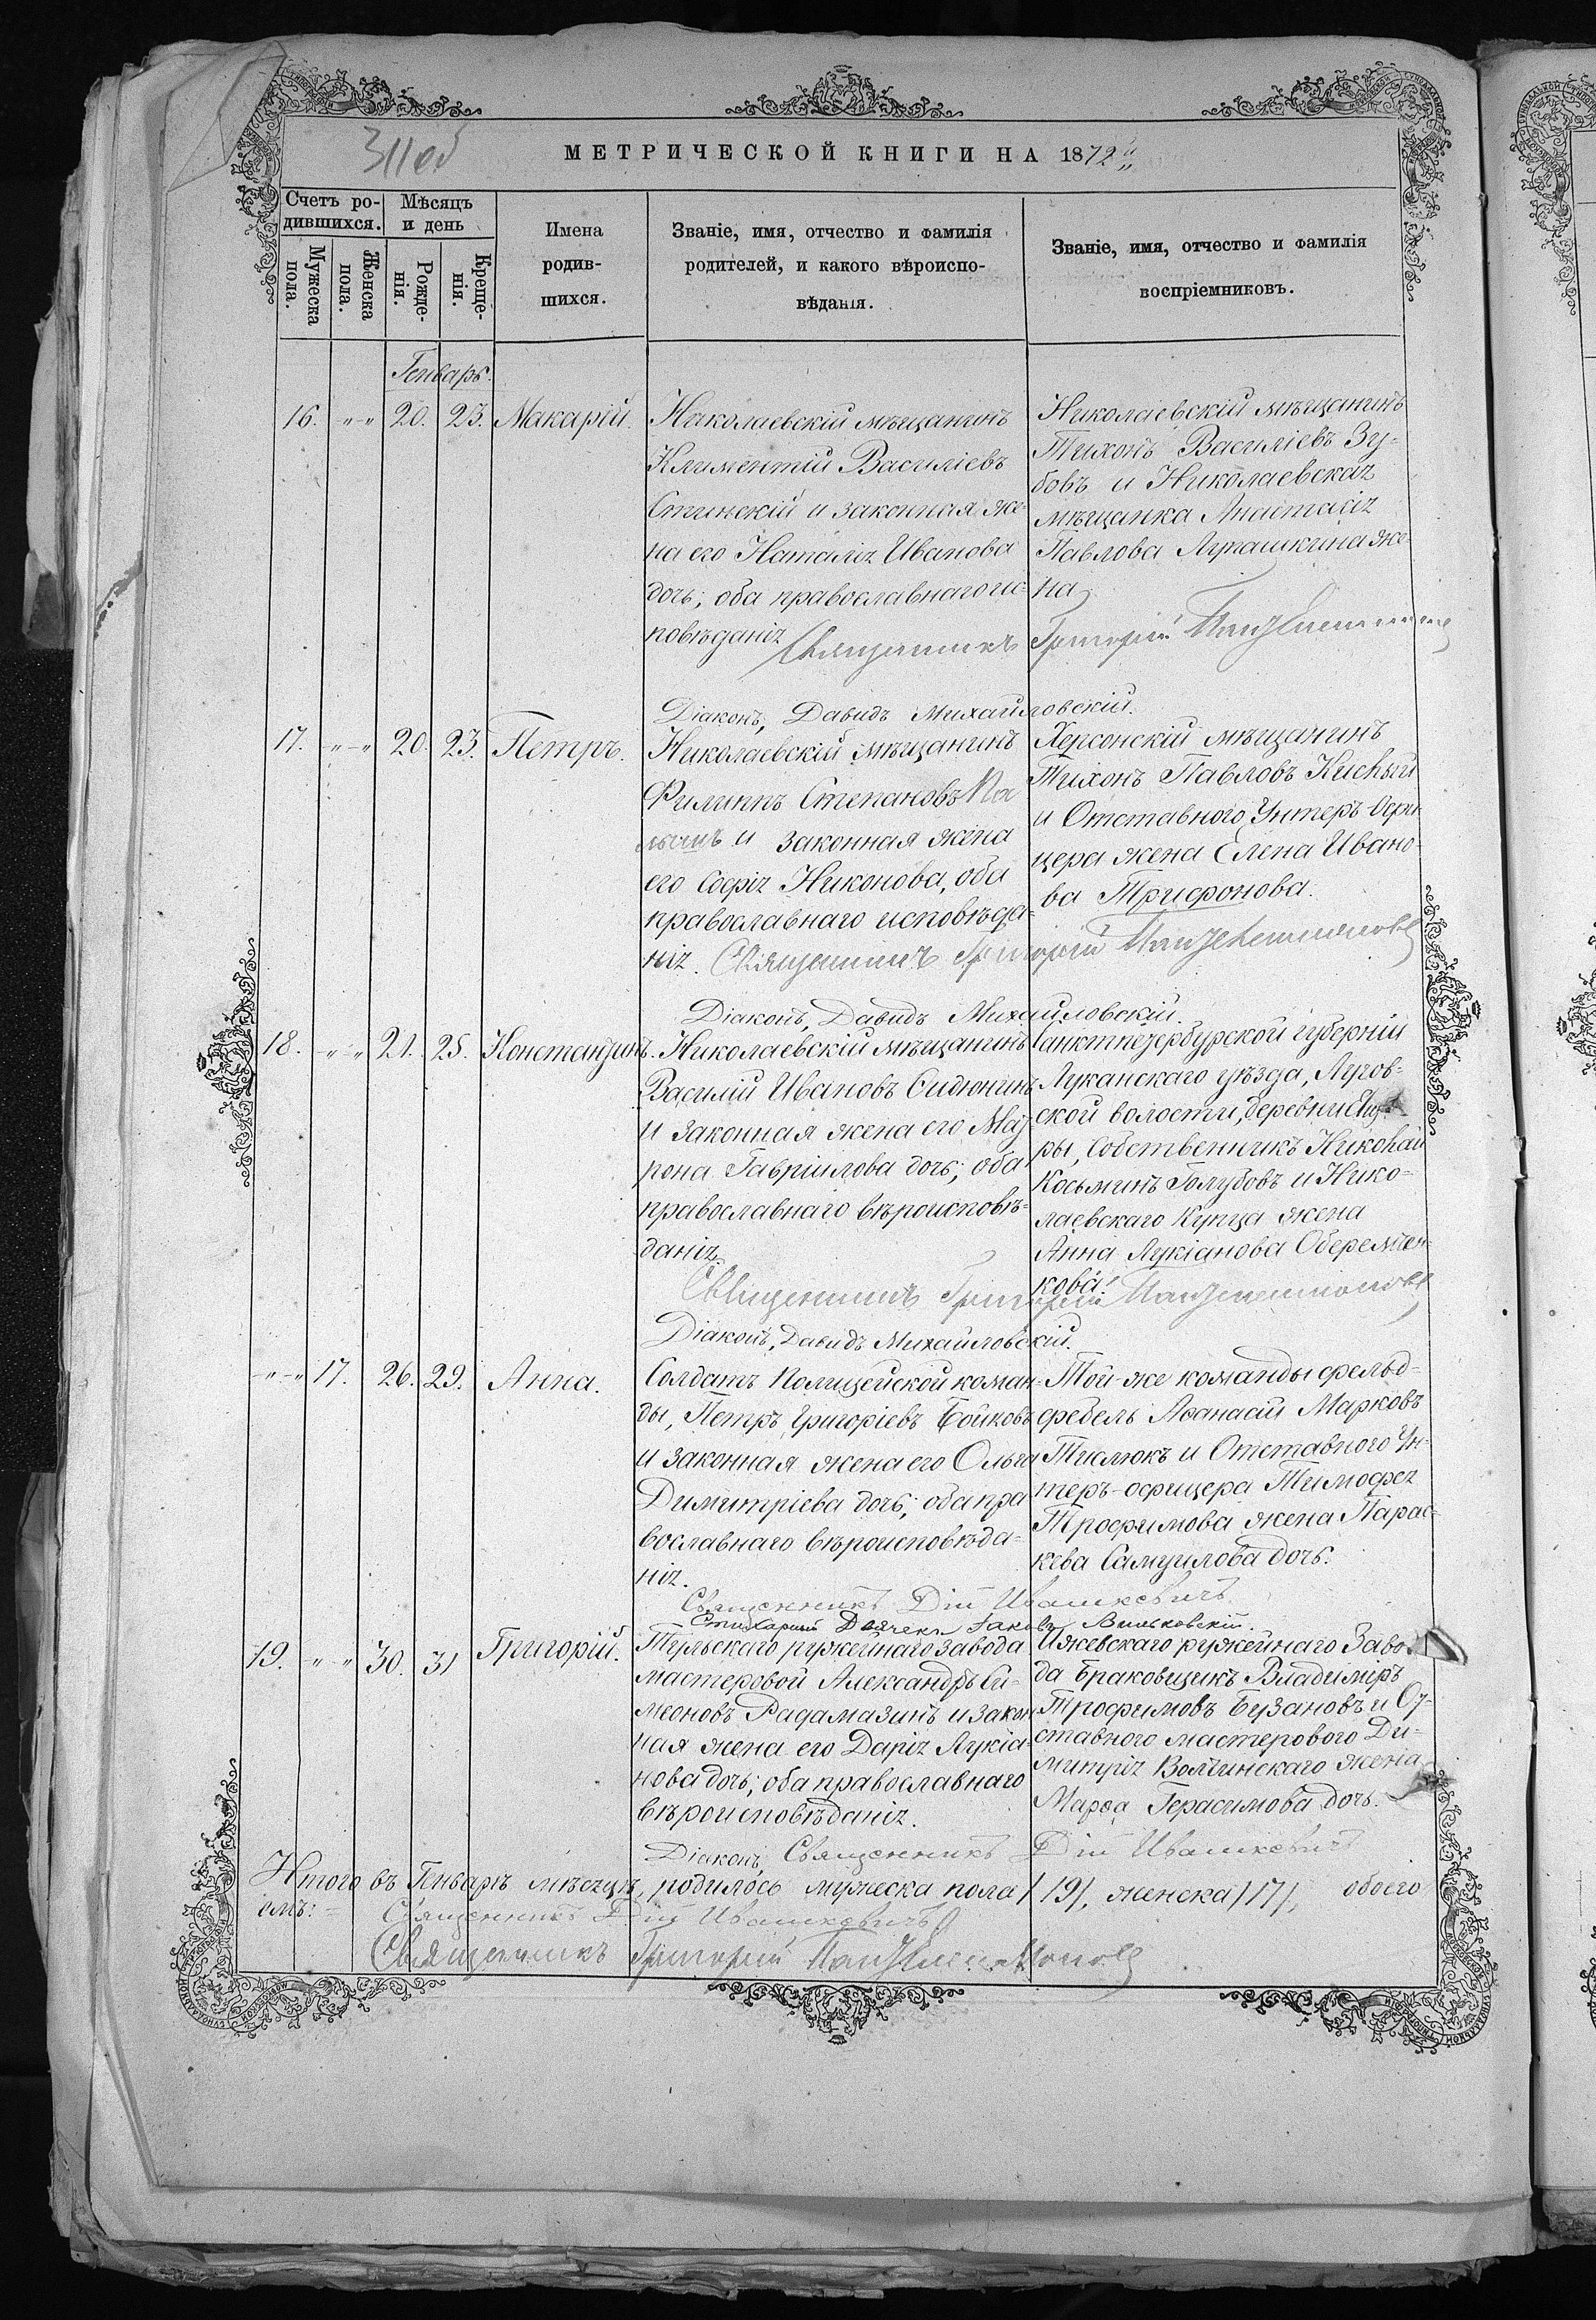 311 об
МЕТРИЧЕСКОЙ КНИГИ НА 1872
Счетъ ро-
дившихся.
Мужеска
пола.
Женска
пола.
Мѣсяцъ
и день
Рожде-
нія.
Креще-
нія.
Имена
родив-
шихся.
Званіе, имя, отчество и фамилія
родителей, и какого вѣроиспо-
вѣданія.
Званіе, имя, отчество и фамилія
воспріемниковъ.
Генварь.
16. „-„ 20. 23. Макарій.
Николаевскій мѣщанинъ
Климентій Василіевъ
и законная же-
на его Наталія Иванова
дочь; оба православнаго ис-
повѣданія
Николаевскій мѣщанинъ
Тихонъ Василіевъ Зу-
бовъ и Николаевская
мѣщанка Анастасія
Павлова Лукашкина же-
на
Священникъ Григорій
Діаконъ, Давидъ Михайловскій.
17. „-„ 20. 23. Петръ.
Николаевскій мѣщанинъ
Филиппъ Степановъ
и законная жена
его Софія Никонова, оба
православнаго исповѣда-
нія.
Херсонскій мѣщанинъ
Тихонъ Павловъ
и Отставного Унтеръ Офи-
цера жена Елена Ивано-
ва Трифонова.
Священникъ Григорій
Діаконъ, Давидъ Михайловскій.
18. „-„ 21. 25. Константинъ.
Николаевскій мѣщанинъ
Василій Ивановъ Сидюнинъ
и законная жена его Мат-
рона Гавріилова дочь; оба
православнаго вѣроисповѣ-
данія
Санктпетербурской губерніи
Луканскаго уѣзда, Лугов-
ской волости, деревни
ры, Собственникъ Николай
Косьминъ Голубовъ и Нико-
лаевскаго Купца жена
Анна Лукіанова Оберемчен-
кова.
Священникъ Григорій
Діаконъ, Давидъ Михайловскій.
„-„ 17. 26. 29. Анна.
Солдатъ Полицейской коман-
ды, Петръ Григоріевъ Бойковъ
и законная жена его Ольга
Димитріева дочь; оба пра
вославнаго вѣроисповѣда-
нія.
Той-же команды фельд-
фебель Аѳанасій Марковъ
Тислюкъ и Отставного Ун-
теръ-офицера Тимофея
Трофимова жена Парас-
кева Самуилова дочь.
Священникъ Дій Ивашкевичъ
Стихарный Дьячекъ Іаковъ Вильковскій.
19. „ „ 30. 31 Григорій.
Тульскаго ружейнаго завода
мастеровой Александръ Си-
меоновъ Радамазинъ и закон
ная жена его Дарія Лукіа-
нова дочь; оба православнаго
вѣроисповѣданія.
Ижевскаго ружейнаго Заво-
да браковщикъ Владимиръ
Трофимовъ Бузановъ и От-
ставного мастерового Ди-
митрія Волчинскаго жена
Марѳа Герасимова дочь.
Діаконъ, Священникъ Дій Ивашкевичъ
Итого въ Генварѣ мѣсяцѣ, родилось мужеска пола /19/, женска /17/, обоего
Священникъ Дій Ивашкевичъ
Священникъ Григорій